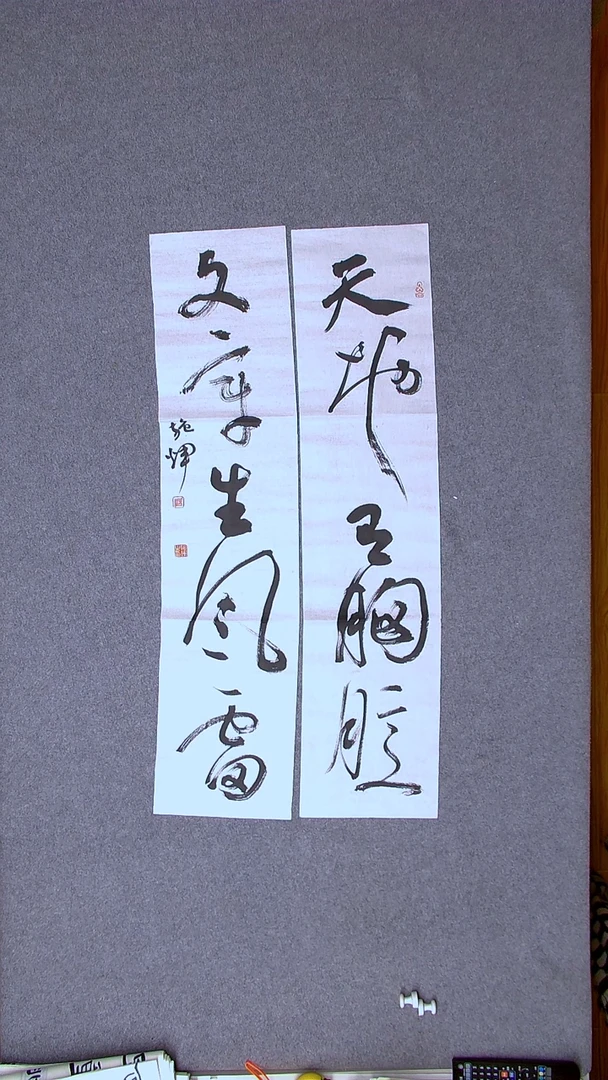 天地胸臆
文章生風雷
施煇